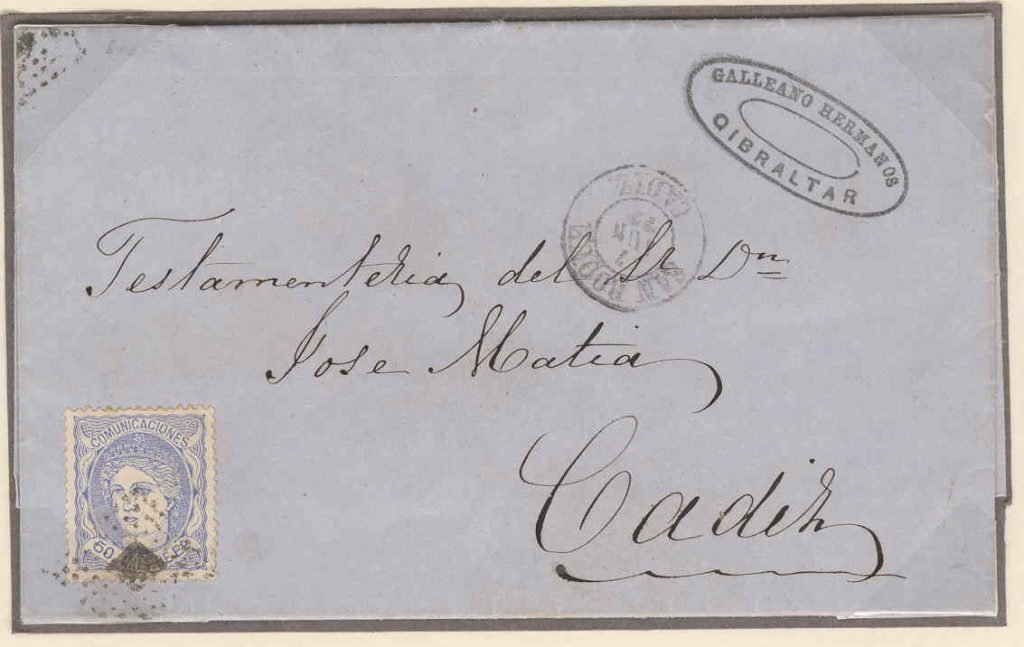 GALLEANO HERMANOS
GIBRALTAR
CADIZ
JUN
SAN ROQUE
Testamenteria del Sr Dn
Jose Matia
Cadiz
COMUNICACIONES
50